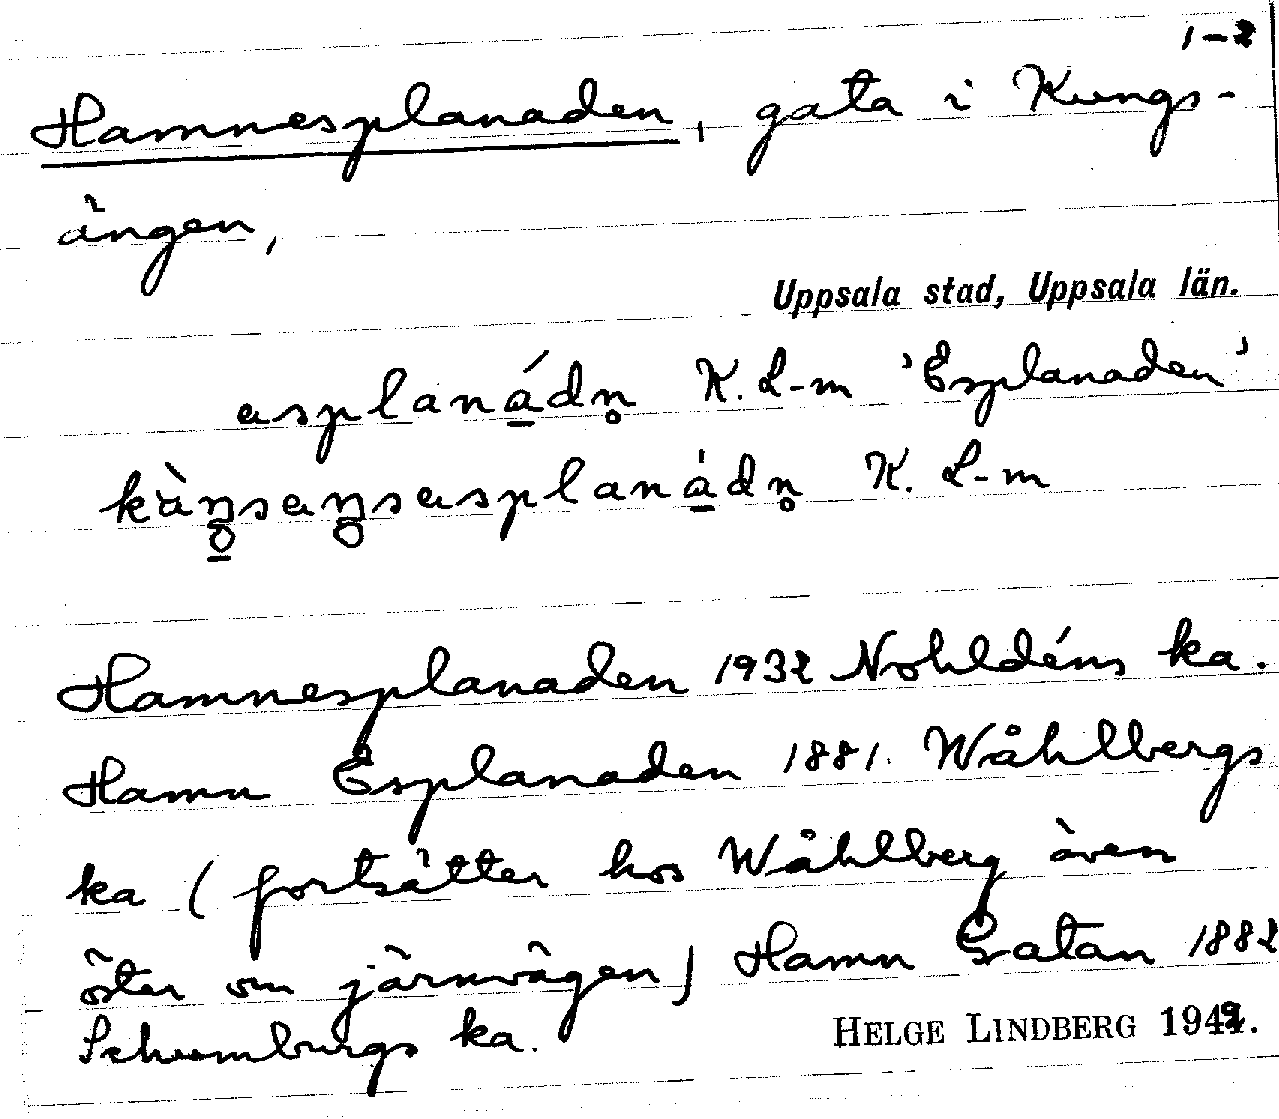 1-2
Hamnesplanaden, gata i Kungs-
ängen,
Uppsala stad, Uppsala län.
esplanádn̥ K. L-m 'Esplanaden'
K. L-m
Hamnesplanaden 1932 Nohldéns ka.
Hamn Esplanaden 1881. Wåhlbergs
ka (fortsätter hos Wåhlberg även
öster om järnvägen) Hamn Gatan 1882
Schumburgs ka.
HELGE LINDBERG